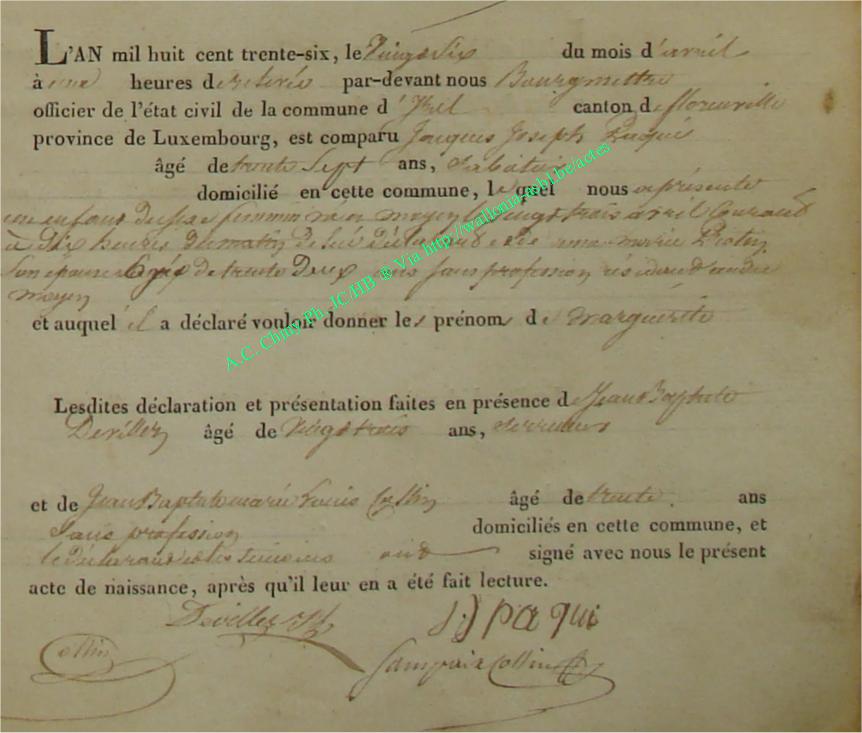 L'AN mil huit cent trente-six, le vingt six du mois d'avril
à une heures de relevée par-devant nous Bourgmettre
officier de l'état civil de la commune d'Izel canton de florenville
province de Luxembourg, est comparu Jacques Joseph Paqui
âgé de trente Sept ans,
domicilié en cette commune, lequel nous a présenté
un enfant du sexe féminin né a moyen le vingt trois avril Courant
à dix heures du matin de lui déclarant et de anne marie
Son épouse agée de trente Deux ans Sans profession résidant audit
moyen
et auquel il a déclaré vouloir donner les prénoms de marguerite
Lesdites déclaration et présentation faites en présence de Jean Baptiste
Devillez âgé de vingt trois ans, serrurier
et de Jean Baptiste marie Louis Collin âgé de trente ans
Sans profession domiciliés en cette commune, et
le déclarant et les témoins ont signé avec nous le présent
acte de naissance, après qu'il leur en a été fait lecture.
Devillez JJ paqui
Collin Collin
A.C. Chiny Ph. JC HB ® Via http://walloniaphl.be/actes